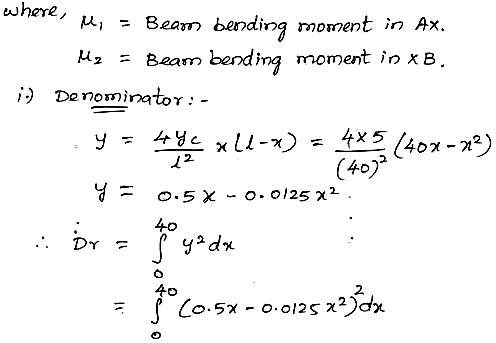 where, μ₁ = Beam bending moment in AX.
μ₂ = Beam bending moment in XB.
i.) Denominator:-
y = 4yc/l² x(l-x) = 4×5/(40)² (40x-x²)
y = 0.5x - 0.0125x².
∴ Dr = ∫₀⁴⁰ y²dx
= ∫₀⁴⁰ (0.5x - 0.0125x²)²dx